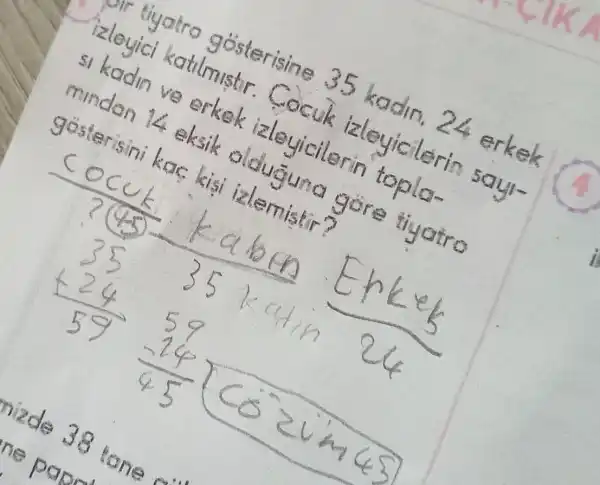 -ÇIKA
bir tiyatro gösterisine 35 kadın, 24 erkek
izleyici katılmıştır. Çocuk izleyicilerin sayı-
sı kadın ve erkek izleyicilerin topla-
mından 14 eksik olduğuna göre tiyatro
gösterisini kaç kişi izlemiştir?
4
cocuk kabın Erkek
? 45 35 katın 24
35
+24
59
59
-14
45
cözüm 45
mizde 38 tane